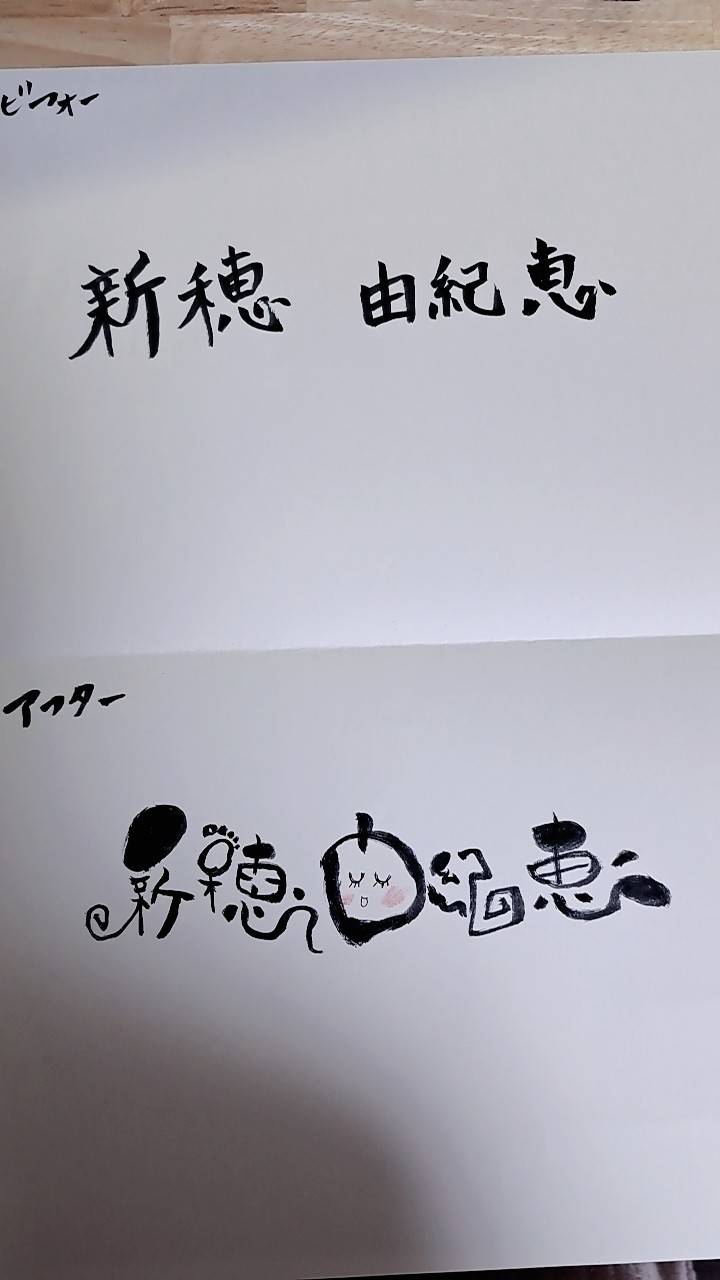 ビフォー
新穂 由紀恵
アフター
新穂由紀恵